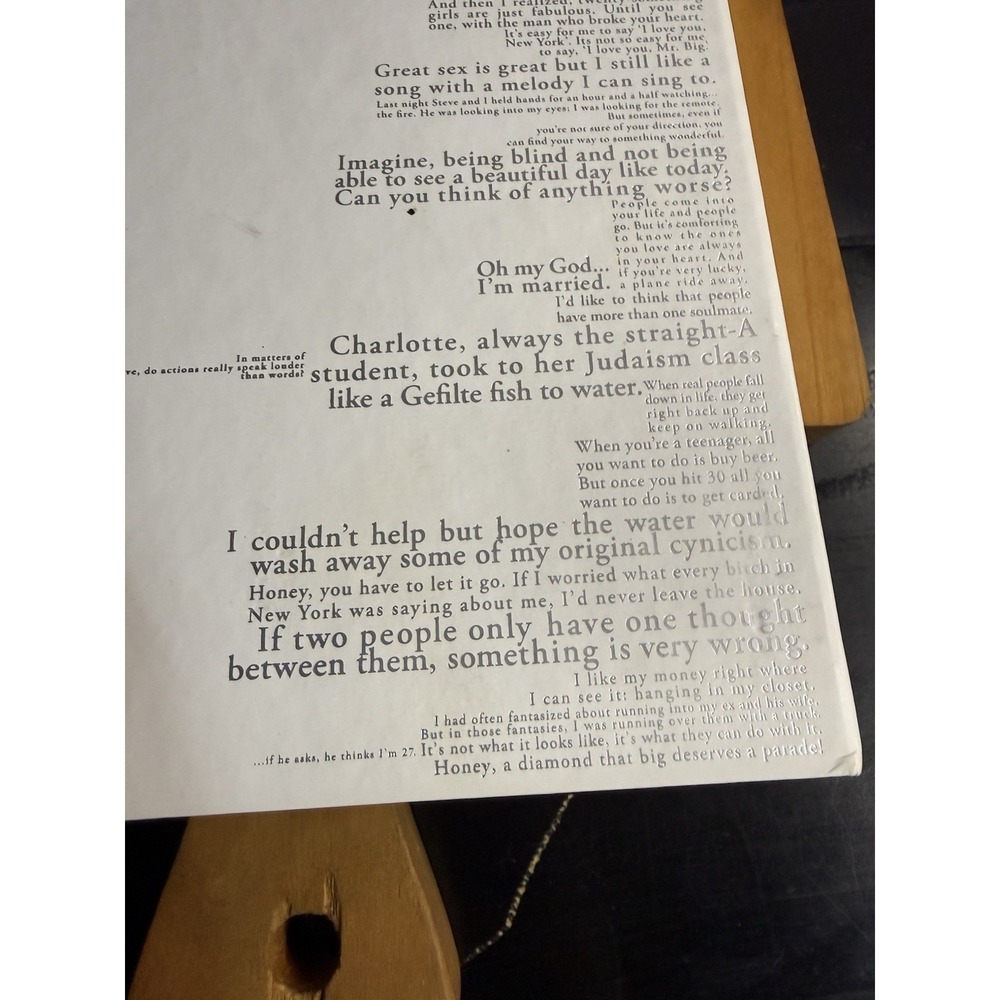 And then I realized, twenty-something
girls are just fabulous. Until you see
one, with the man who broke your heart.
It's easy for me to say 'I love you,
New York'. Its not so easy for me
to say, 'I love you, Mr. Big.'
Great sex is great but I still like a
song with a melody I can sing to.
Last night Steve and I held hands for an hour and a half watching...
the fire. He was looking into my eyes; I was looking for the remote.
But sometimes, even if
you're not sure of your direction, you
can find your way to something wonderful.
Imagine, being blind and not being
able to see a beautiful day like today.
Can you think of anything worse?
People come into
your life and people
go. But it's comforting
to know the ones
you love are always
in your heart. And
if you're very lucky,
a plane ride away.
Oh my God...
I'm married.
I'd like to think that people
have more than one soulmate.
In matters of
ve, do actions really speak louder
than words?
Charlotte, always the straight-A
student, took to her Judaism class
like a Gefilte fish to water.
When real people fall
down in life, they get
right back up and
keep on walking.
When you're a teenager, all
you want to do is buy beer.
But once you hit 30 all you
want to do is to get carded.
I couldn't help but hope the water would
wash away some of my original cynicism.
Honey, you have to let it go. If I worried what every bitch in
New York was saying about me, I'd never leave the house.
If two people only have one thought
between them, something is very wrong.
I like my money right where
I can see it: hanging in my closet.
I had often fantasized about running into my ex and his wife.
But in those fantasies, I was running over them with a truck.
...if he asks, he thinks I'm 27. It's not what it looks like, it's what they can do with it.
Honey, a diamond that big deserves a parade!